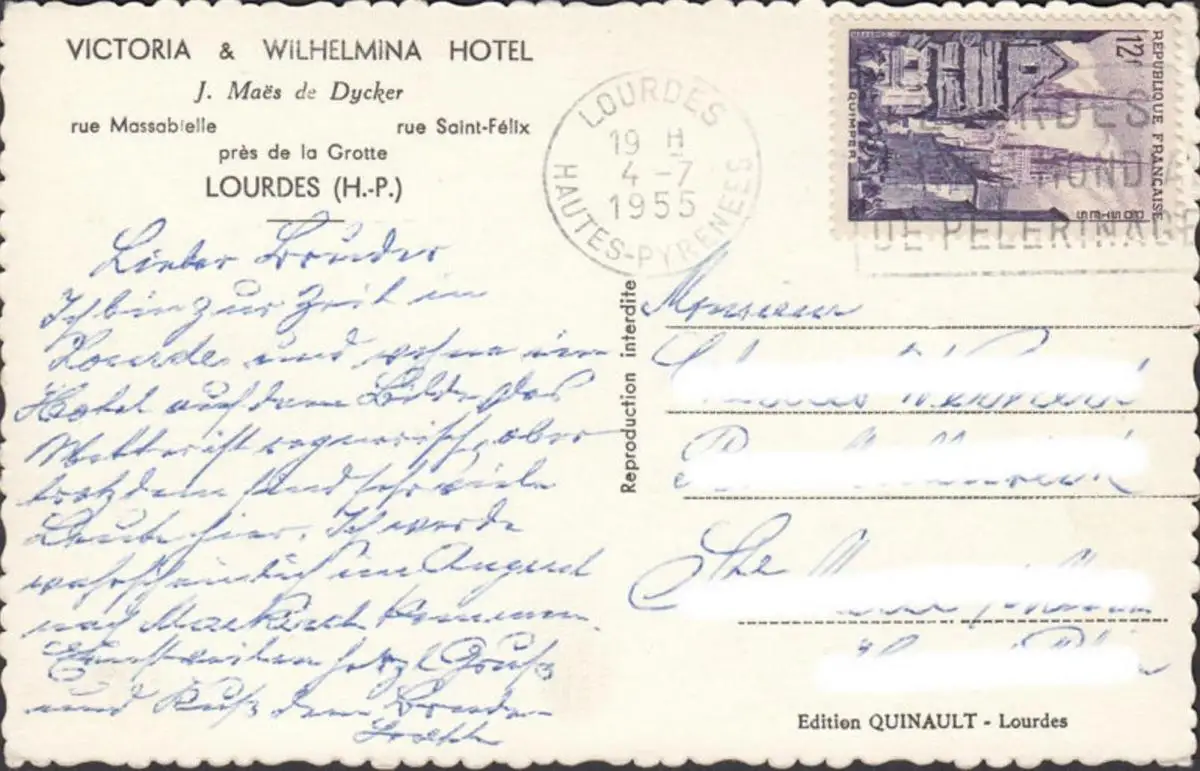 VICTORIA & WILHELMINA HOTEL
J. Maës de Dycker
rue Massabielle rue Saint-Félix
près de la Grotte
LOURDES (H.-P.)
Lieber Bruder
Ich bin zur Zeit in
Lourde und wohne im
Hotel auf dem Bilde, das
Wetter ist regnerisch, aber
trotzdem sind sehr viele
Leute hier. Ich werde
wahrscheinlich im August
nach Markirch kommen.
Einstweilen herzl Gruß
und Kuß dein Bruder
LOURDES
19 H
4 -7
1955
HAUTES-PYRENEES
RÉPUBLIQUE FRANÇAISE
12f
QUIMPER
LOURDES
MONDIA
DE PELERINAGE
Reproduction interdite
Monsieur
Ste
Edition QUINAULT - Lourdes